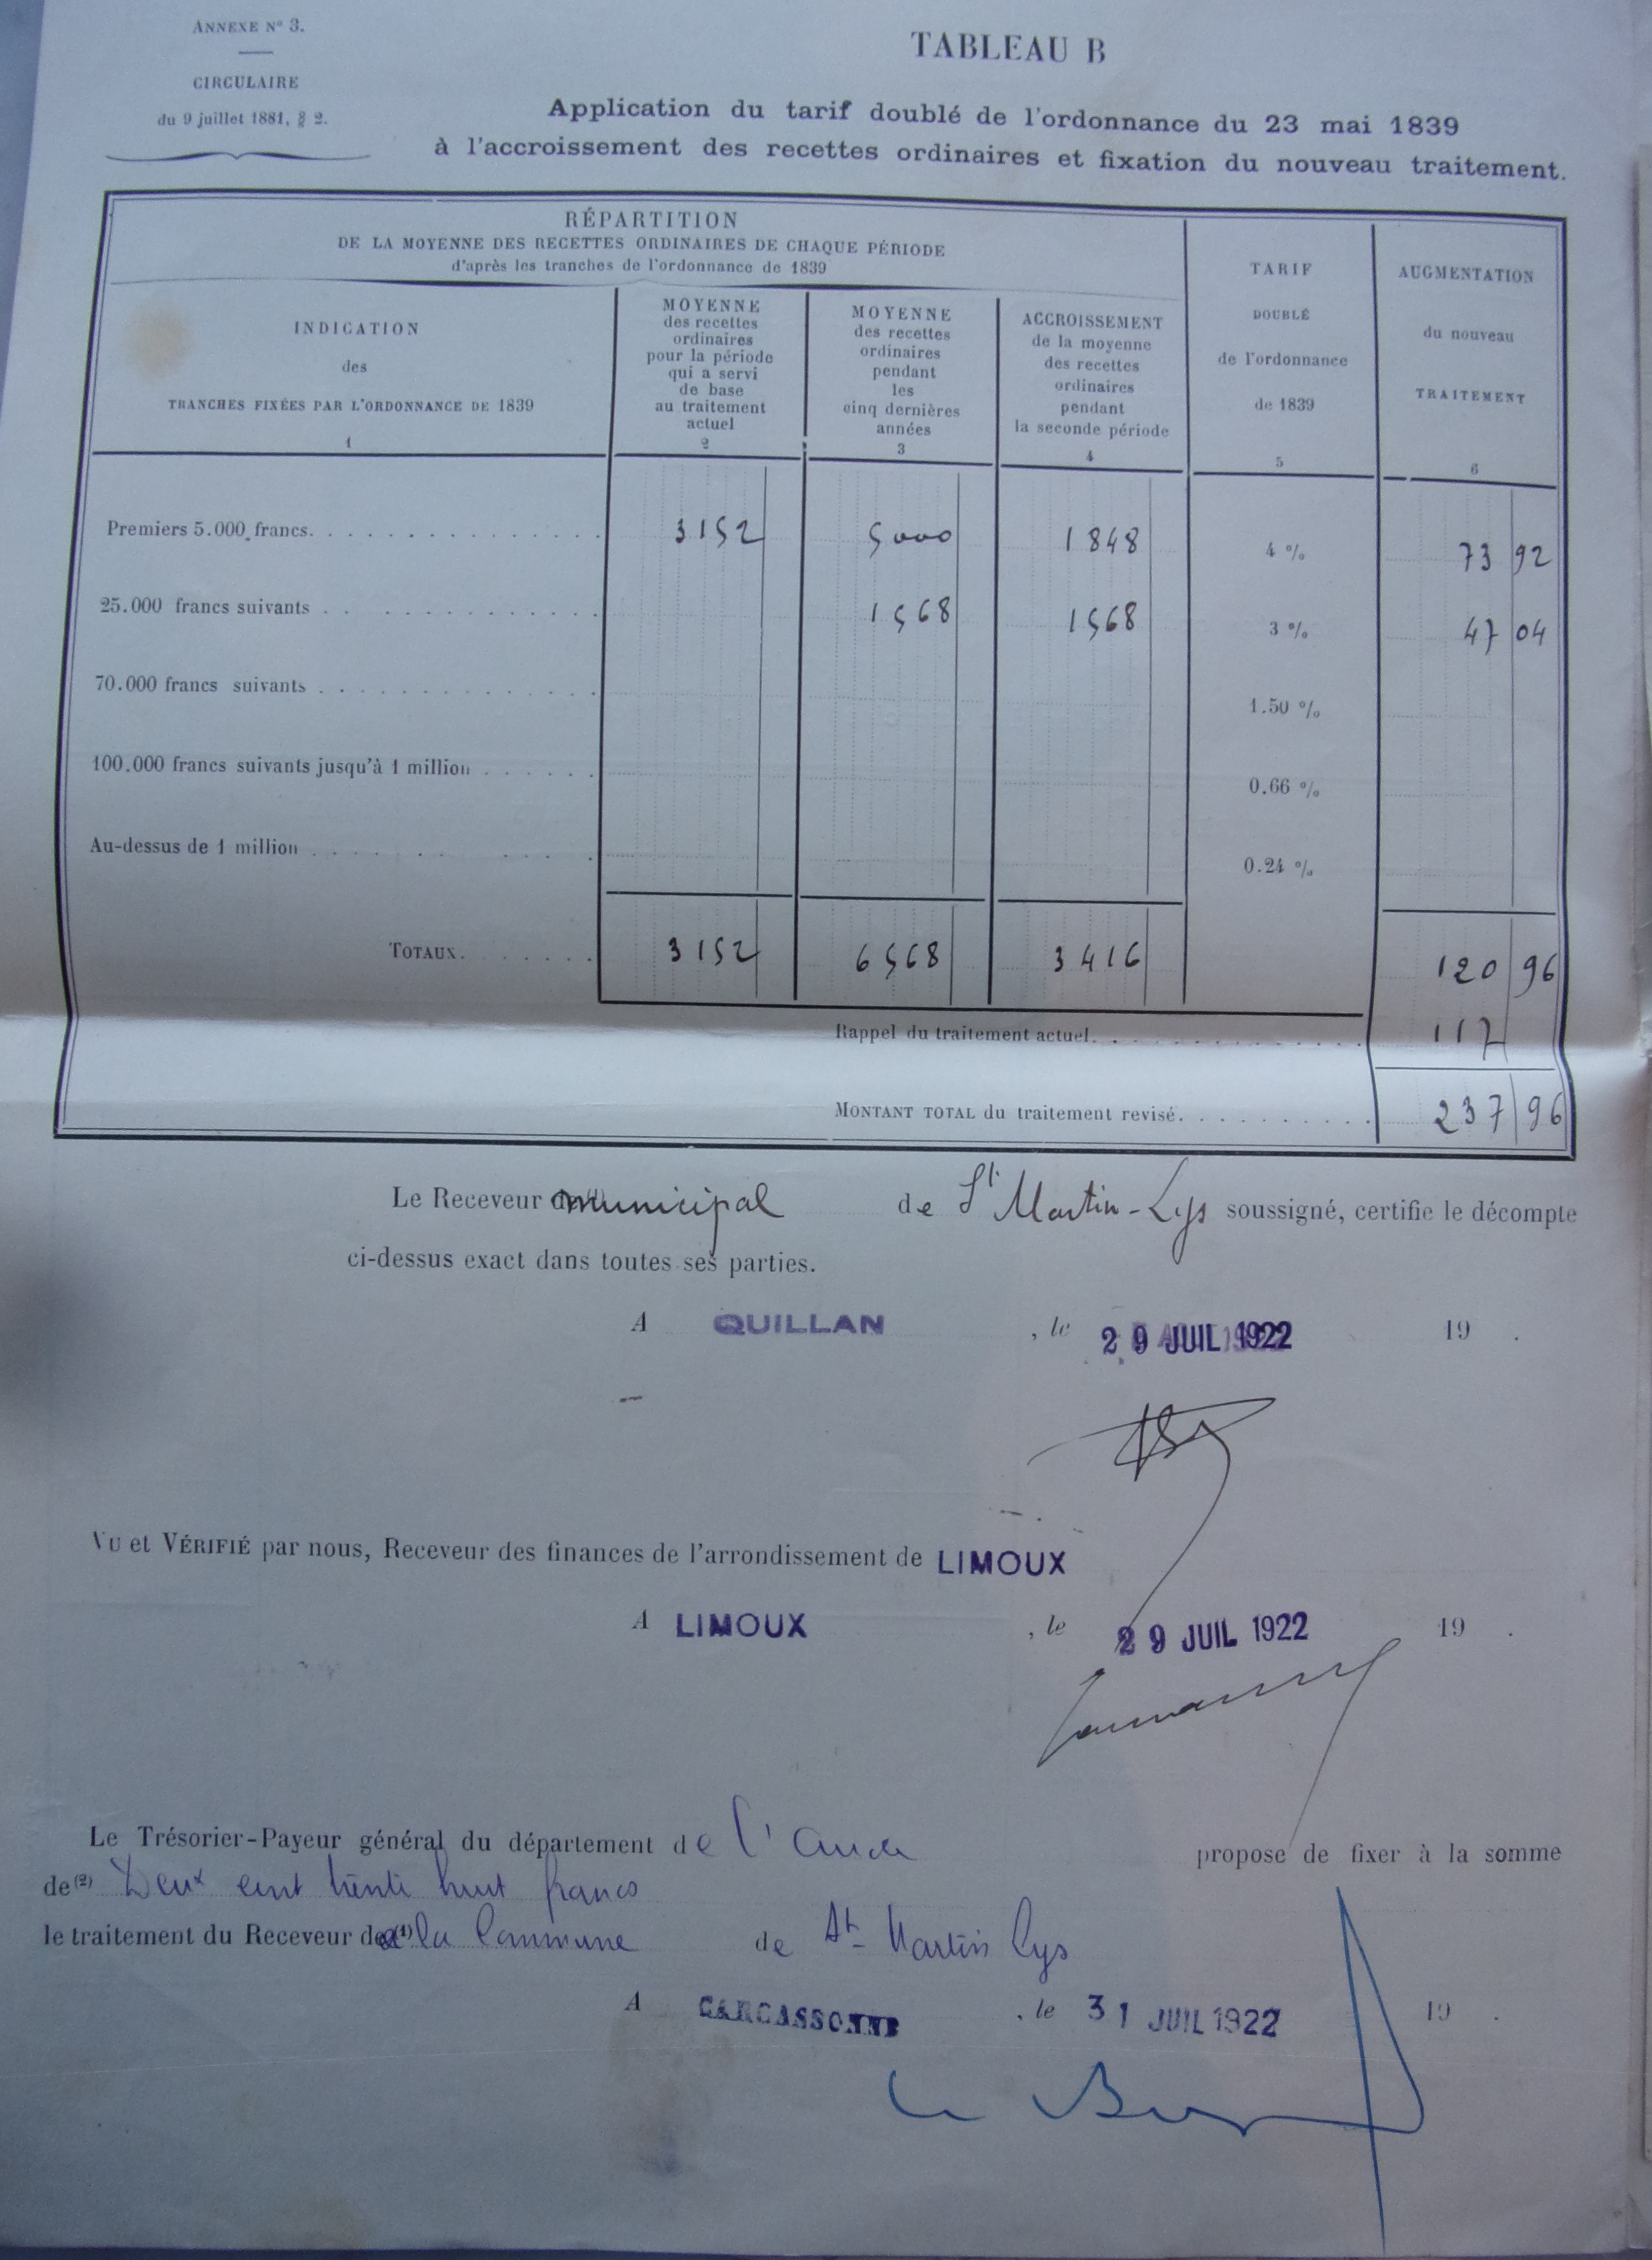 ANNEXE N° 3.
CIRCULAIRE
du 9 juillet 1881, § 2.
TABLEAU B
Application du tarif doublé de l'ordonnance du 23 mai 1839
à l'accroissement des recettes ordinaires et fixation du nouveau traitement.
RÉPARTITION
DE LA MOYENNE DES RECETTES ORDINAIRES DE CHAQUE PÉRIODE
d'après les tranches de l'ordonnance de 1839
INDICATION
des
TRANCHES FIXÉES PAR L'ORDONNANCE DE 1839
1
MOYENNE
des recettes
ordinaires
pour la période
qui a servi
de base
au traitement
actuel
2
MOYENNE
des recettes
ordinaires
pendant
les
cinq dernières
années
3
ACCROISSEMENT
de la moyenne
des recettes
ordinaires
pendant
la seconde période
4
TARIF
DOUBLÉ
de l'ordonnance
de 1839
5
AUGMENTATION
du nouveau
TRAITEMENT
6
Premiers 5.000 francs. 3152 5000 1848 4 % 73 92
25.000 francs suivants 1568 1568 3 % 47 04
70.000 francs suivants 1.50 %
100.000 francs suivants jusqu'à 1 million 0.66 %
Au-dessus de 1 million 0.24 %
TOTAUX. 3152 6568 3416 120 96
Rappel du traitement actuel. 117
MONTANT TOTAL du traitement revisé. 237 96
Le Receveur municipal de St Martin-Lys soussigné, certifie le décompte
ci-dessus exact dans toutes ses parties.
A QUILLAN, le 29 JUIL 1922 19 .
VU et VÉRIFIÉ par nous, Receveur des finances de l'arrondissement de LIMOUX
A LIMOUX, le 29 JUIL 1922 19 .
Le Trésorier-Payeur général du département de l'Aude propose de fixer à la somme
de (2) Deux cent trente huit francs
le traitement du Receveur de (1) la Commune de St Martin Lys
A CARCASSONNE, le 31 JUIL 1922 19 .